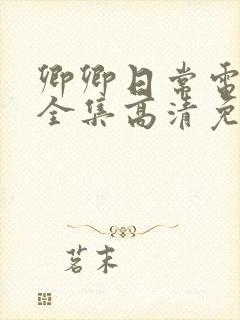 卿卿日常电
全集高清免
茗末